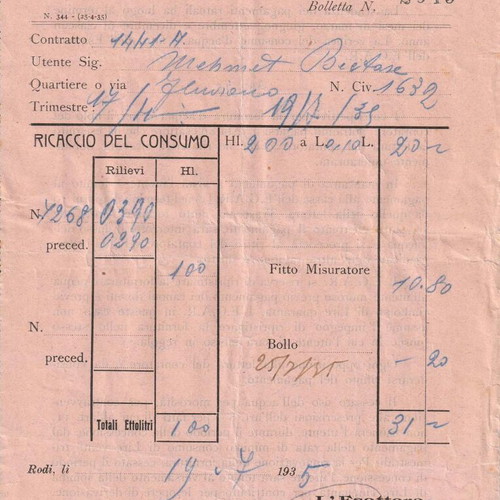 N. 344 - (25-4-35)
Bolletta N.
Contratto 1441-A
Utente Sig. Mehmet Bectase
Quartiere o via N. Civ. 1632
Trimestre: 17/4 19/7/35
RICACCIO DEL CONSUMO Hl. 200 a L. 0,10 L. 20 -
Rilievi Hl.
N. 7268 0390
preced. 0290
100
Fitto Misuratore 10.80
N.
Bollo - 20
preced. 25/7/35
Totali Ettolitri 100 31 -
Rodi, li 19 - 7 1935
L'Esattore